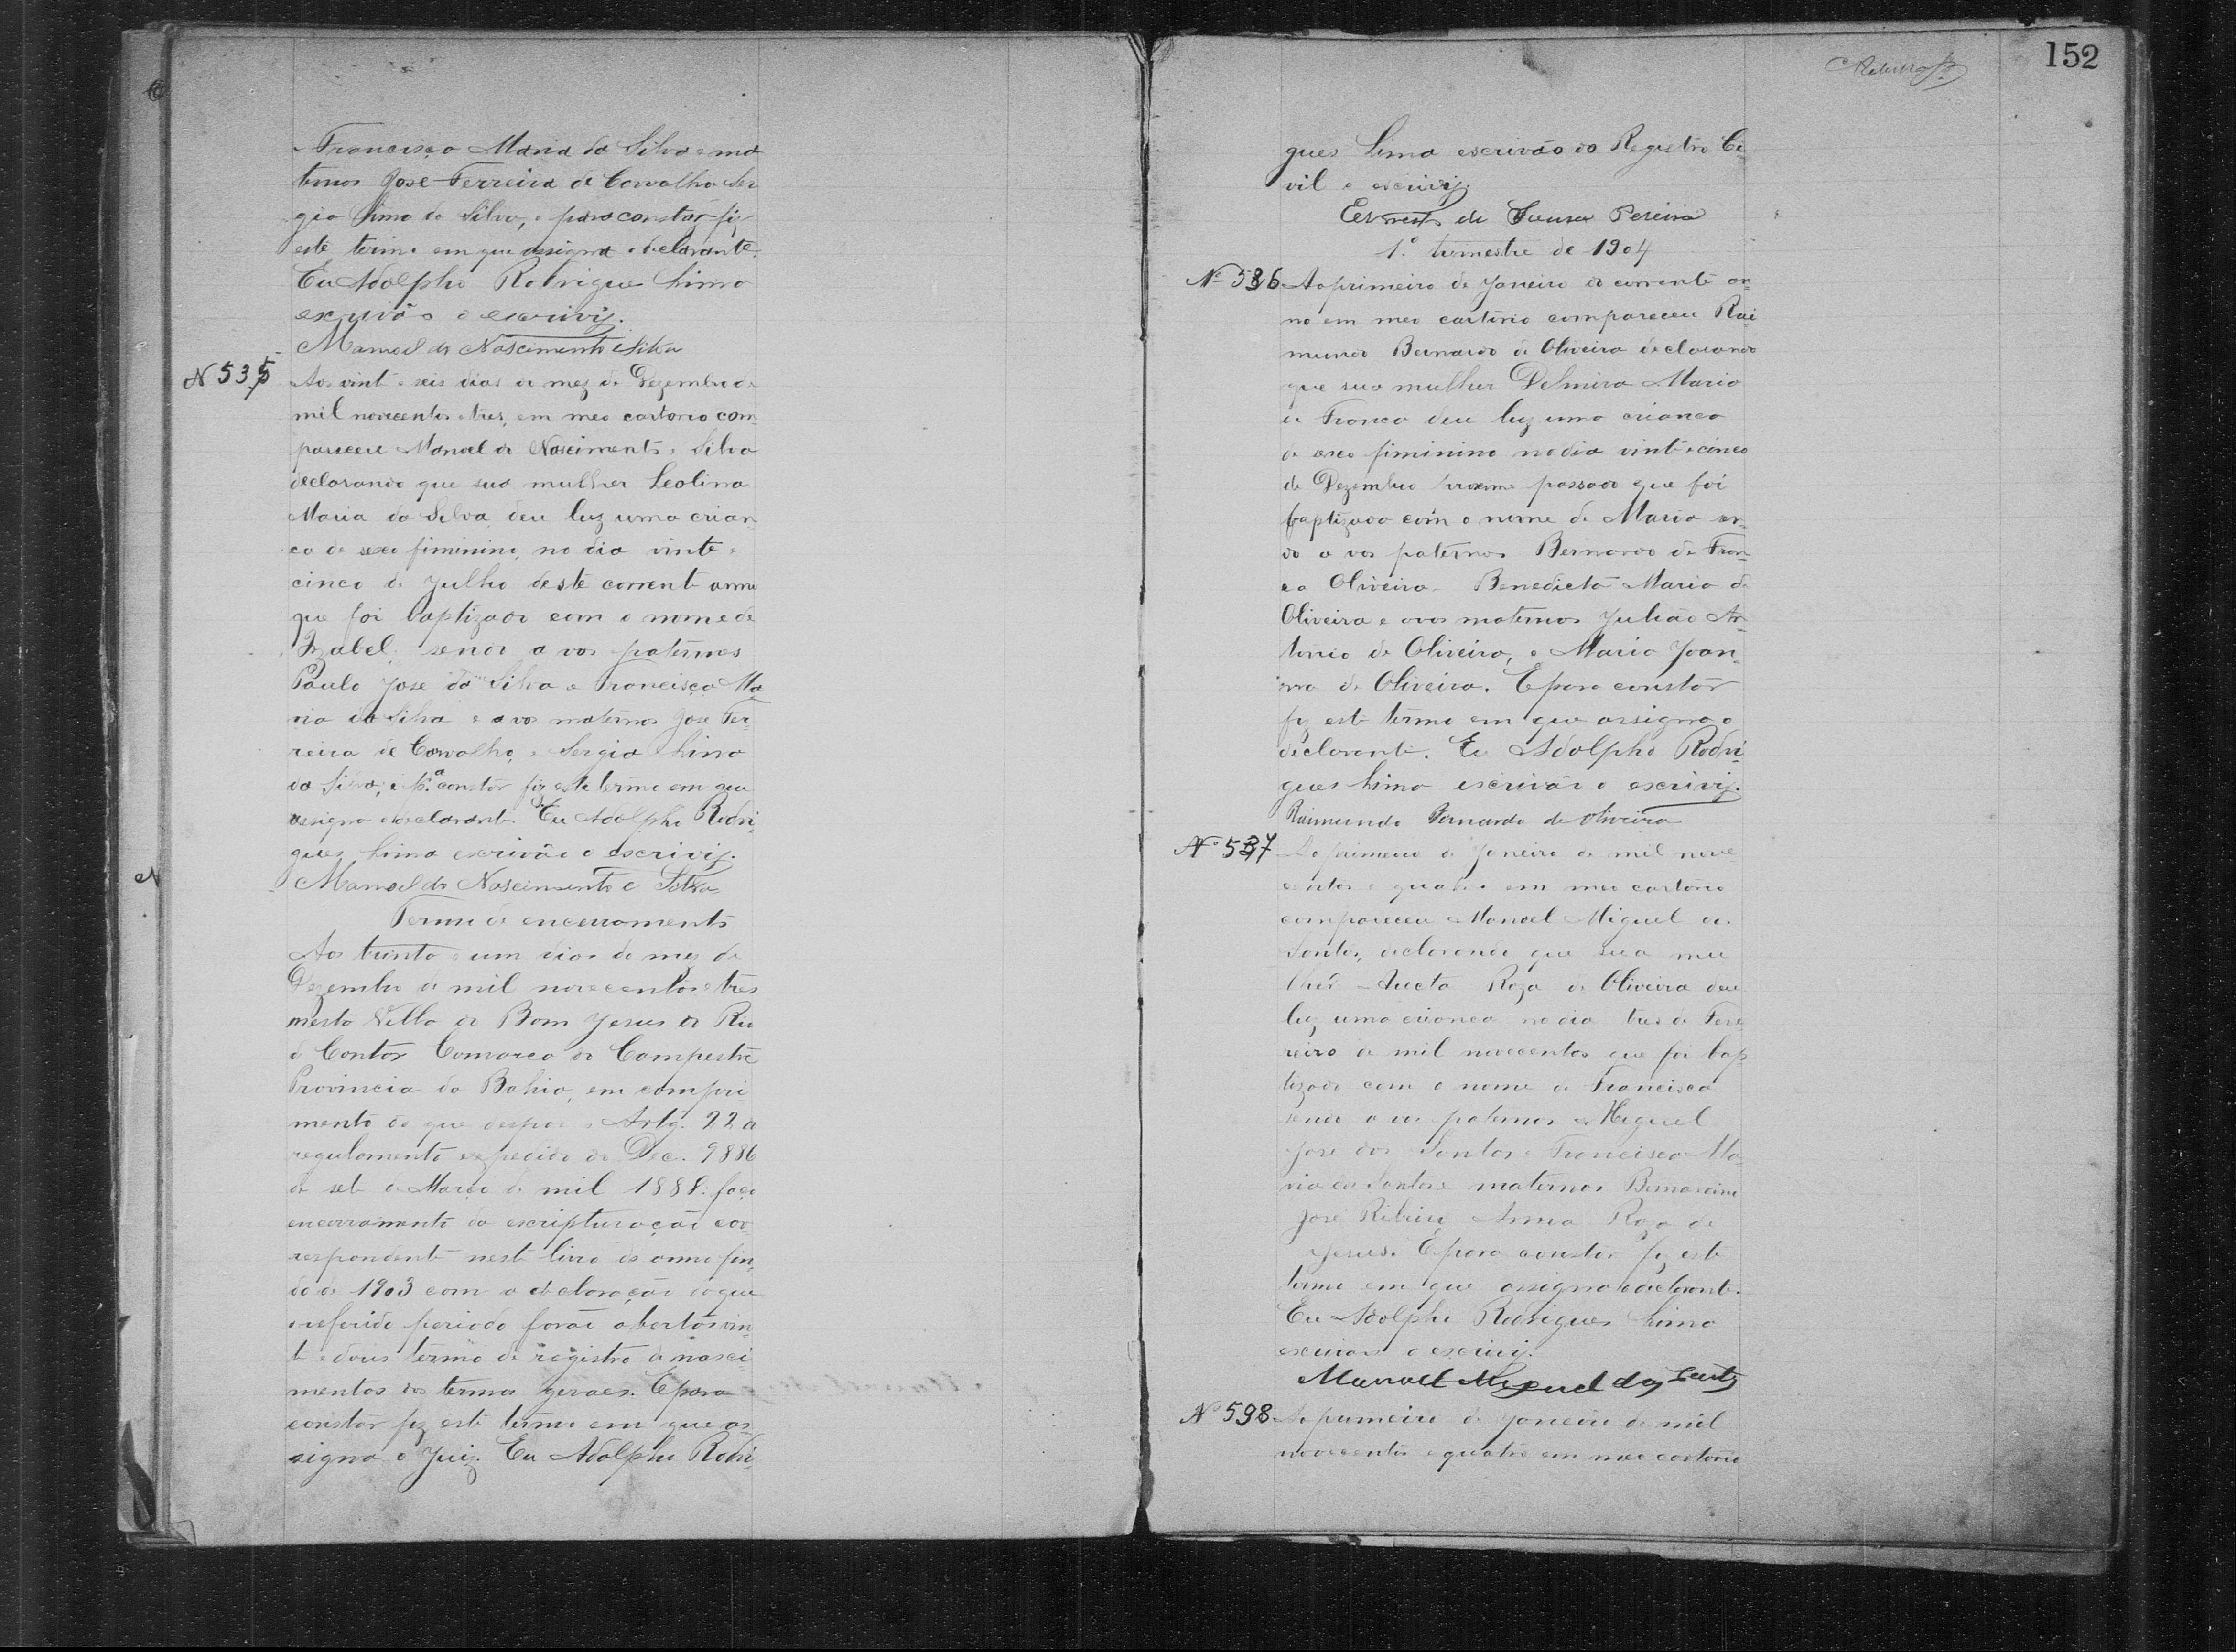 Francisca Maria da Silva e ma
ternos José Ferreira de Carvalho Ser
gia Lima da Silva, e para constar fiz
este termo em que assigna o declarante.
Eu Adolpho Rodrigues Lima
escrivão o escrivy.
Manoel do Nascimento e Silva
N 535 Aos vinte seis dias do mez de Dezembro de
mil novecentos e tres, em meo cartorio com
pareceu Manoel do Nascimento e Silva
declarando que sua mulher Leolina
Maria da Silva, deu luz uma crian
ca de sexo fiminino, no dia vinte e
cinco de Julho deste corrente anno
que foi baptizado com o nome de
Izabel sendo avos paternos
Paulo José da Silva e Francisca Ma
ria da Silva e avos maternos José Fer
reira de Carvalho, e Sergia Lima
da Silva, e pa. constar fiz este termo em que
assigna o declarante. Eu Adolpho Rodri
gues Lima escrivão o escrivy.
Manoel do Nascimento e Silva
Termo de encerramento
Aos trinta e um dias do mez de
Dezembro de mil novecentos e tres
nesta Villa do Bom Jesus do Rio
de Contas Comarca do Campestre
Provincia da Bahia, em compri
mento do que dispoe o Artg. 22 do
regulamento expedido do Dec. 9886
de sete de Março de mil 1888: faço
encerramento da escripturação cor
respondente neste livro do anno fin
do de 1903 com a declaração de que
o referido periodo forão abertos vin
te e dous termo de registro de nasci
mentos dos termos geraes. E para
constar fiz este termo em que as
signa o Juiz. Eu Adolpho Rodri
152
gues Lima escrivão do Registro Ci
vil o escrivy.
Ernesto de Souza Pereira
1.º trimestre de 1904
Nº 536 Ao primeiro de Janeiro do corrente an
no em meo cartorio compareceu Rai
mundo Bernardo de Oliveira declarando
que sua mulher Delmira Maria
de Franca deu luz uma crianca
de sexo fiminino no dia vinte e cinco
de Dezembro proximo passado que foi
baptizado com o nome de Maria sen
do avos paternos Bernardo de Fran
ca Oliveira Benedicta Maria de
Oliveira e avos maternos Julião An
tonio de Oliveira, e Maria Joan
na de Oliveira. E para constar
fiz este termo em que assigna o
declarante. Eu Adolpho Rodri
gues Lima escrivão o escrivy.
Raimundo Bernardo de Oliveira
Nº 537 Ao primeiro de Janeiro de mil nove
centos e quatro em meo cartorio
compareceu Manoel Miguel dos
Santos, declarando que sua mu
lher Roza de Oliveira deu
luz uma crianca no dia tres de Feve
reiro de mil novecentos que foi bap
tizado com o nome de Francisca
sendo avos paternos Miguel
José dos Santos e Francisca Ma
ria dos Santos e maternos Bernardino
José Ribeiro Anna Roza de
Jesus. E para constar fiz este
termo em que assigna o declarante.
Eu Adolpho Rodrigues Lima
escrivão o escrivy.
Manoel Miguel dos Santos
Nº 538 Ao primeiro de Janeiro de mil
novecentos e quatro em meo cartorio